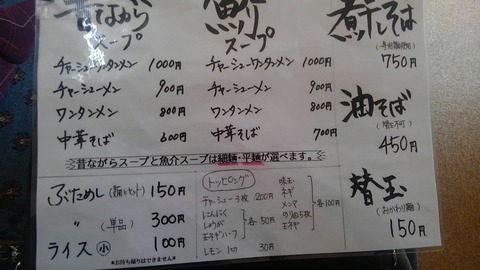 昔ながら
スープ
チャーシューワンタンメン 1000円
チャーシューメン 900円
ワンタンメン 800円
中華そば 600円
スープ
チャーシューワンタンメン 1000円
チャーシューメン 900円
ワンタンメン 800円
中華そば 700円
昔ながらスープと魚介スープは細麺・平麺が選べます。
煮干しそば
750円
油そば
(替玉不可)
450円
替玉
(おかわり麺)
150円
ぶためし (麺とセット) 150円
〃 (単品) 300円
ライス 小 100円
*お持ち帰りはできません*
トッピング
チャーシュー3枚 200円
にんにく
しょうが
玉ネギハーフ
各50円
レモン 1コ 30円
味玉
ネギ
メンマ
のり5枚
玉ネギ
各100円